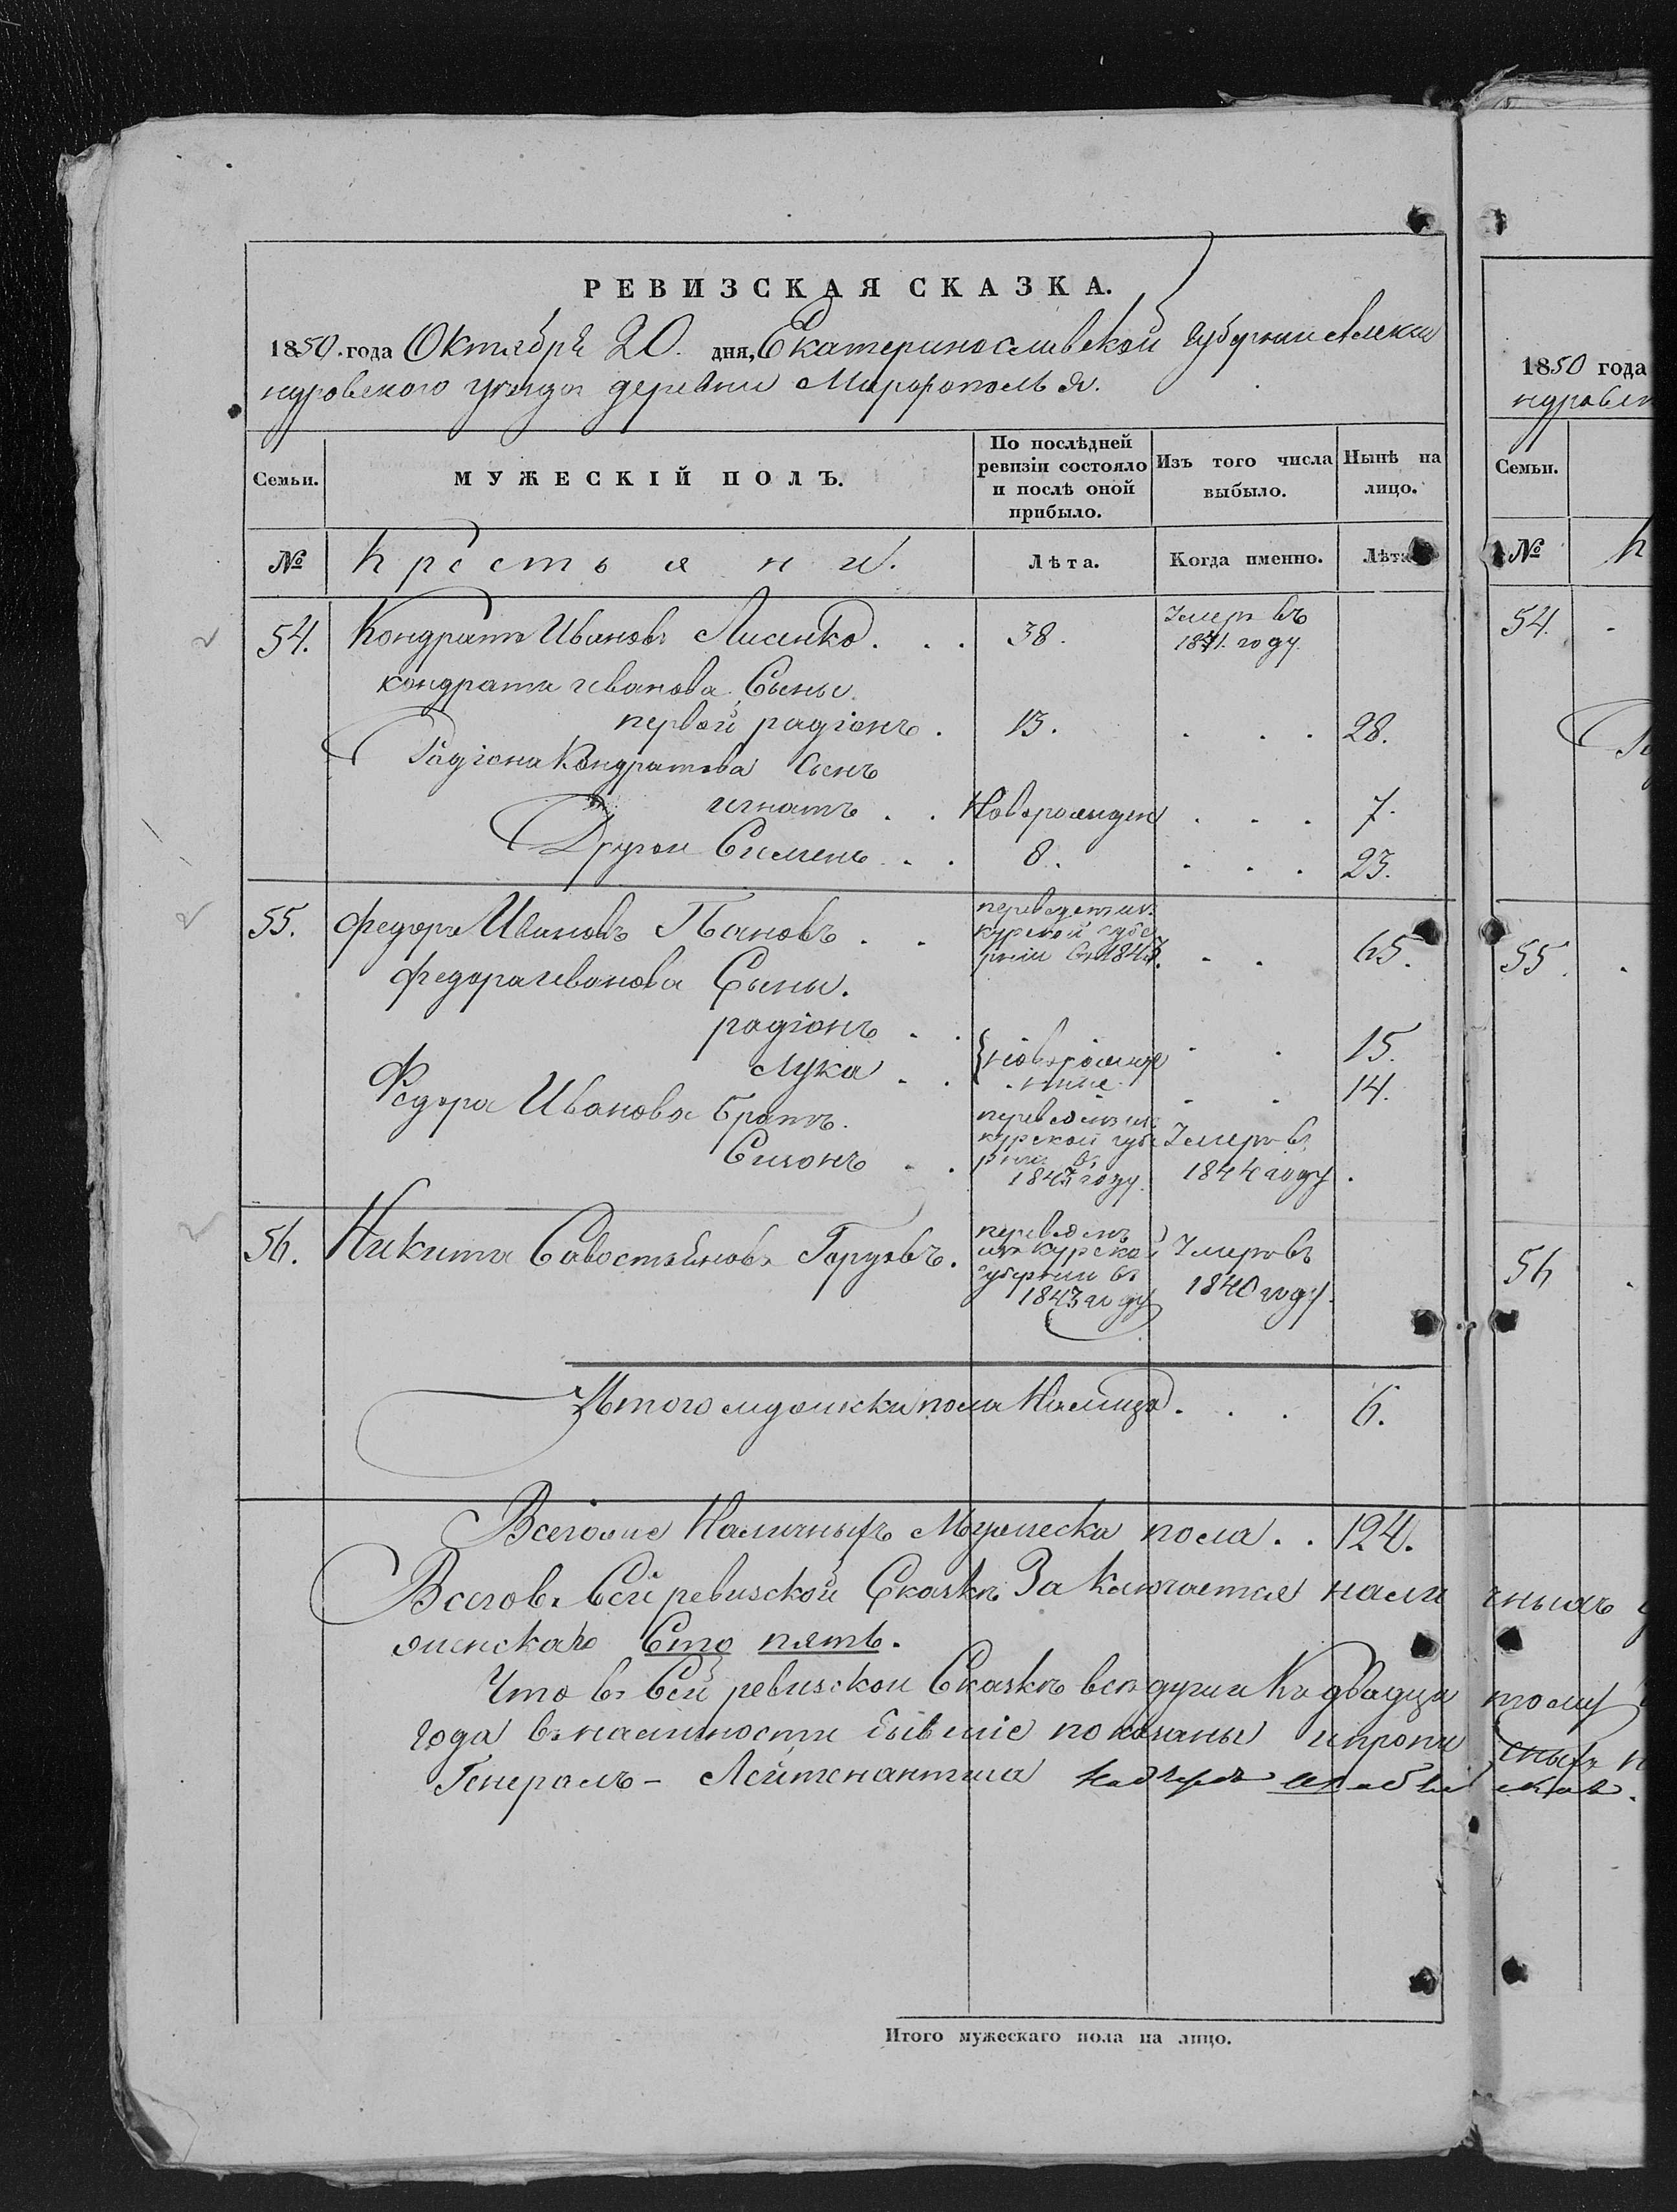 РЕВИЗСКАЯ СКАЗКА.
1850. года Октября 20. дня, Екатеринославской Губернии Алекса
ндровского уѣзда деревни Марфополья.
Семьи. МУЖЕСКІЙ ПОЛЪ. По послѣдней ревизіи состояло и послѣ оной прибыло. Изъ того числа выбыло. Нынѣ на лицо.
№ Крестьяни. Лѣта. Когда именно. Лѣта
54. Кондратъ Ивановъ Лисенко . . . 38. Умеръ въ 1841. году.
кондрата иванова Сыны
первой радіонъ . 13. . . . 28.
Радіона Кондратова Сынъ
игнатъ . . Новорожден . . . 7.
Другои Сименъ . . 8. . . . 23.
55. федоръ Ивановъ Пановъ . . переведен изъ курской губернии въ 1843. . . 65.
федора иванова Сыны.
радіонъ . . . . 15.
Лука . . новорожденные . . 14.
Федора Иванова братъ.
Сизонъ . . переведенъ из курской губернии въ 1843 году Умеръ въ 1844 году .
56. Никита Савостьяновъ Горуовъ. переведенъ изъ Курской губернии въ 1843 году Умеръ въ 1840 году.
Итого мужеска пола Налицо . . . 6.
Всегоже Наличныхъ Мужеска пола . . 124.
Всего въ Сей ревизской Сказкѣ Заключается нали
женскаго Сто пять.
Что въ Сей ревизскои Сказкѣ всѣ души Къ двадца
года въ наличности бывшіе показаны и пропи
Генералъ - Лейтенантша
Итого мужескаго пола на лицо.
1850 года
ндровск
Семьи.
№ К
54. .
55. .
56 .
чныхъ
тому